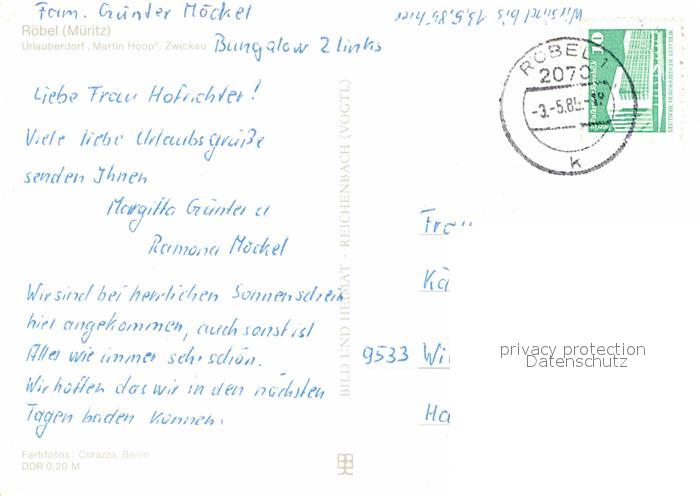 Fam. Günter Möckel
Röbel (Müritz)
Urlauberdorf „Martin Hoop", Zwickau
Bungalow 2 links
Wir sind bis 13.5.85 hier
Liebe Frau Hofrichter!
Viele liebe Urlaubsgrüße
senden Ihnen
Margitta Günter u
Ramona Möckel
Wir sind bei herrlichen Sonnenschein
hier angekommen, auch sonst ist
Alles wie immer sehr schön.
Wir hoffen das wir in den nächsten
Tagen baden können.
Farbfotos: Corazza, Berlin
DDR 0,20 M
BILD UND HEIMAT · REICHENBACH (VOGTL)
10
DEUTSCHE DEMOKRATISCHE REPUBLIK
RÖBEL 1
2070
-3.-5.85.-
k
Fra
Kä
9533 Wi
Ha
privacy protection
Datenschutz